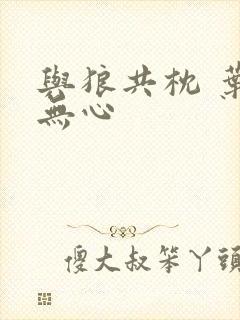 與狼共枕 葉
無心
傻大叔笨丫頭